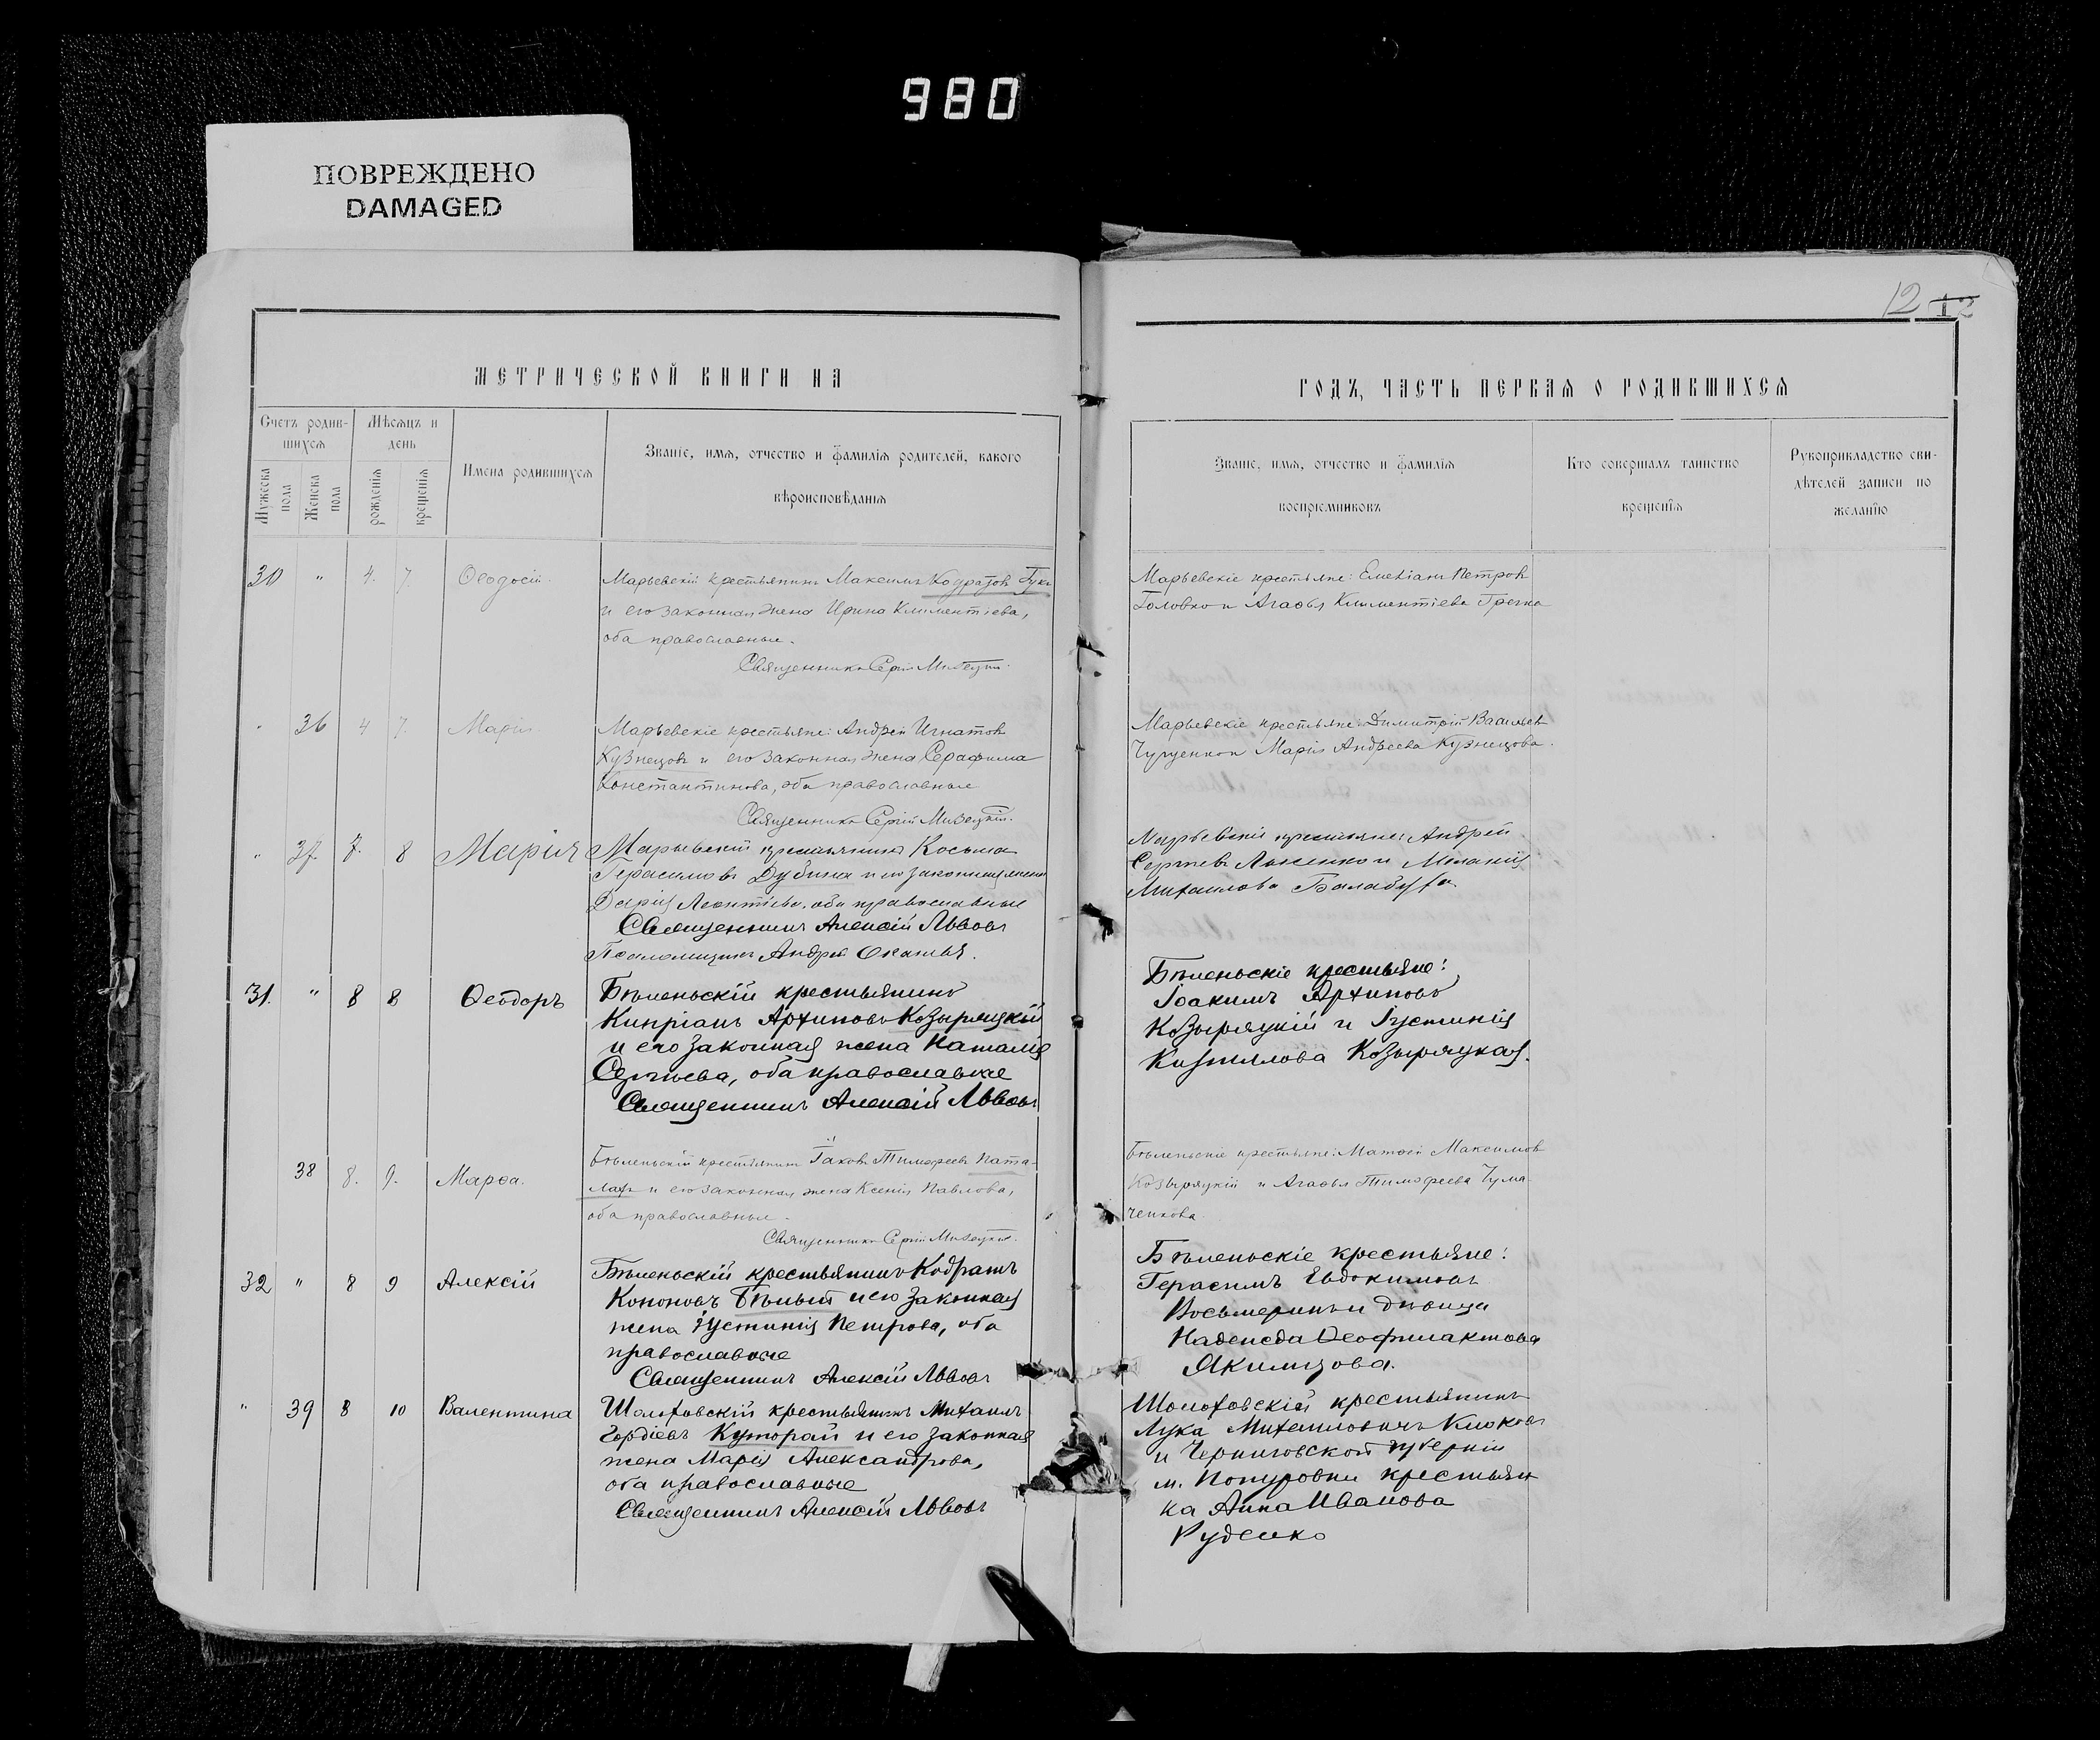 980
ПОВРЕЖДЕНО
DAMAGED
12 12
МЕТРИЧЕСКОЙ КНИГИ НА
Счетъ родив-
шихся
Мѣсяцъ и
день
Мужеска
пола
Женска
пола
рожденія
крещенія
Имена родившихся
Званіе, имя, отчество и фамилія родителей, какого
вѣроисповѣданія
30 " 4. 7. Ѳеодосій.
Марьевскій крестьянинъ Максимъ Кодратовъ Гукъ
и его законная жена Ирина Климентіева,
оба православные.
Священникъ Сергій
" 36 4 7. Марія
Марьевскіе крестьяне: Андрей Игнатовъ
Кузнецовъ и его законная жена Серафима
Константинова, оба православные
Священникъ Сергій
" 37. 7. 8 Марія
Марьевскій крестьянинъ Косьма
Герасимовъ Дубина и его законная жена
Дарія Леонтіева, оба православные
Священникъ Алексій Львовъ
Псаломщикъ Андрей
31. " 8 8 Ѳеодоръ
Бѣленьскій крестьянинъ
Кипріанъ Архиповъ Козыряцкій
и его законная жена Наталія
Сергіева, оба православные
Священникъ Алексій Львовъ
38 8. 9. Марѳа.
Бѣленьскій крестьянинъ Іаковъ Тимофеевъ Пата-
лахъ и его законная жена Ксенія Павлова,
оба православные.
Священникъ Сергій
32 " 8 9 Алексій
Бѣленьскій крестьянинъ Кодратъ
Кононовъ Бѣлый и его законная
жена Іустинія Петрова, оба
православные
Священникъ Алексій Львовъ
" 39 8 10 Валентина
Шолоховскій крестьянинъ Михаилъ
Гордіевъ Куторай и его законная
жена Марія Александрова,
оба православные
Священникъ Алексій Львовъ
ГОДЪ, ЧАСТЬ ПЕРВАЯ О РОДИВШИХСЯ
Званіе, имя, отчество и фамилія
воспріемниковъ
Кто совершалъ таинство
крещенія
Рукоприкладство сви-
дѣтелей записи по
желанію
Марьевскіе крестьяне: Емеліанъ Петровъ
Головко и Агафья Климентіева Гречка
Марьевскіе крестьяне: Димитрій Васильевъ
и Марія Андреева Кузнецова.
Марьевскіе крестьяне: Андрей
Сергіевъ и Меланія
Михаилова
Бѣленьскіе крестьяне:
Іоакимъ Архиповъ
Козыряцкій и Іустинія
Козыряцкая.
Бѣленьскіе крестьяне: Матѳей Максимовъ
Козыряцкій и Агафья Тимофеева Чума-
ченкова.
Бѣленьскіе крестьяне:
Герасимъ Евдокимовъ
Восьмеринъ и дѣвица
Надежда Ѳеофилактова
Якимцова.
Шолоховскій крестьянинъ
Лука Михаиловичъ
и Черниговской губерніи
м. крестьян
ка Анна Иванова
Руденко